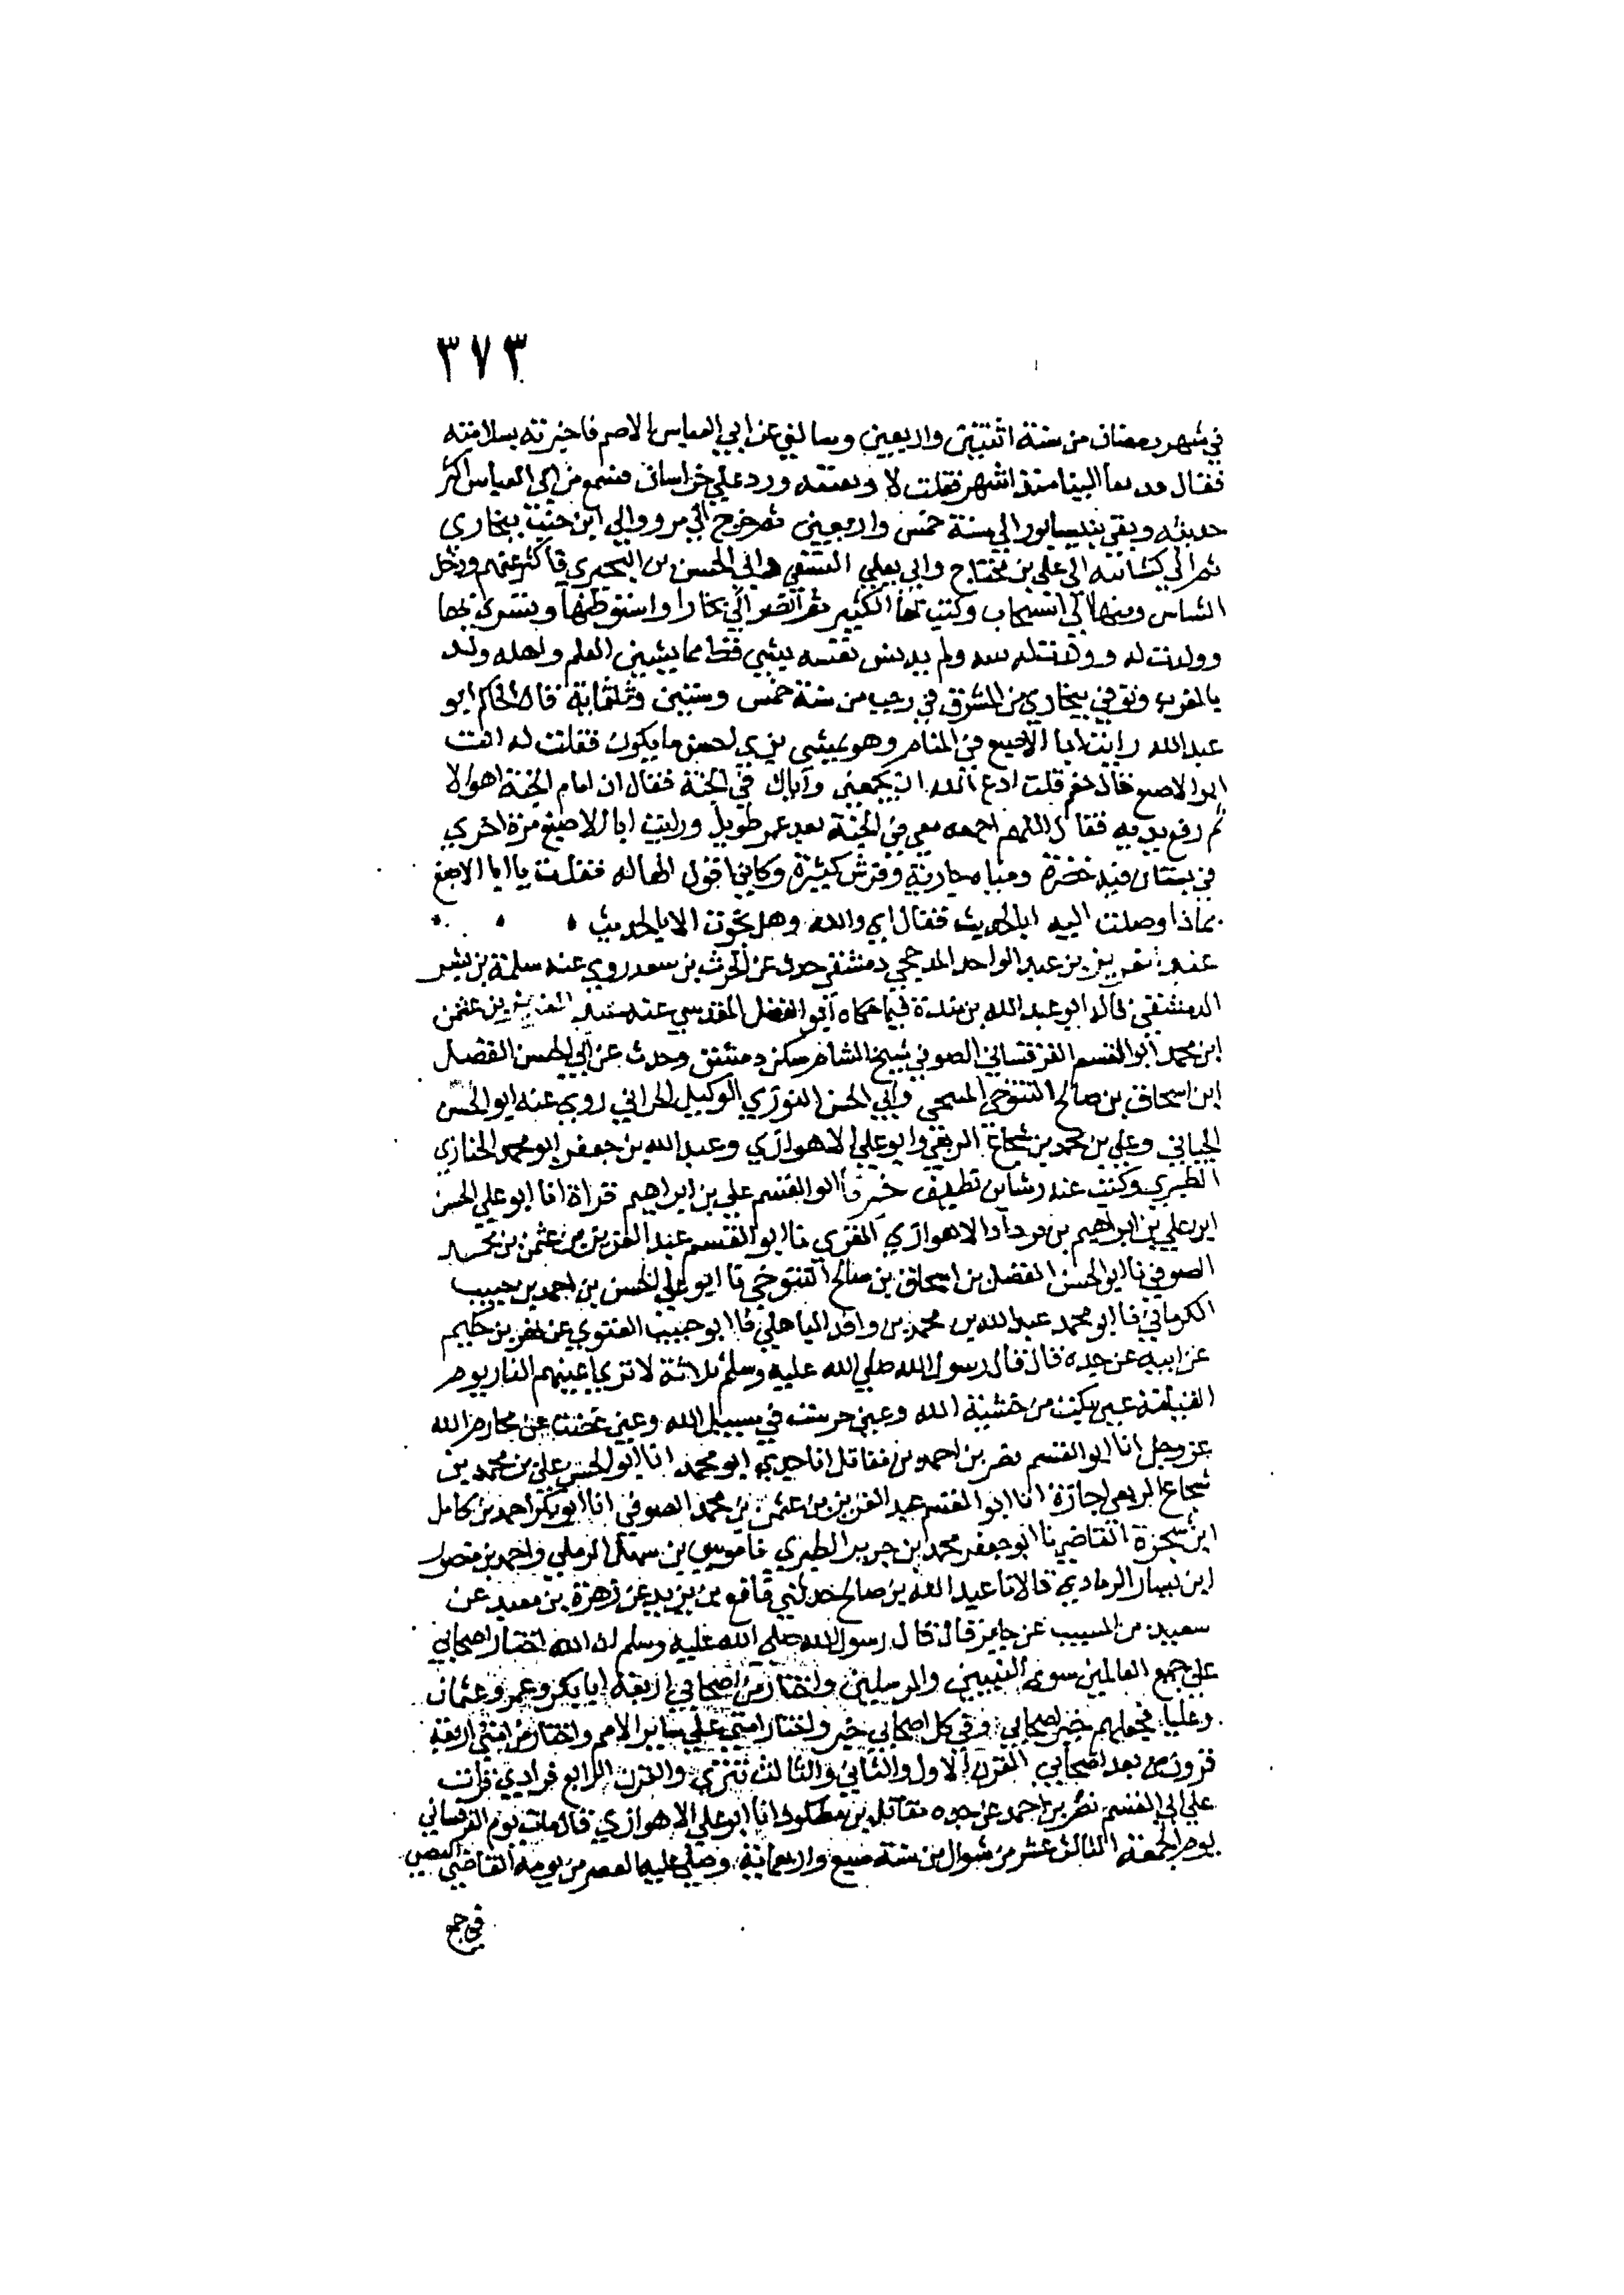 ٣٧٣
في شهر رمضان من سنة اثنتين واربعين وسالني عن ابي العباس الاصم فاخبرته بسلامته
فقال قد نعا الينا منذ اشهر فقلت لا ونعته ورد علي خراسان فسمع من ابي العباس اكثر
حديثه وبقي بنيسابور الي سنة خمس واربعين ثم خرج الي مرو والي ابن خنب ببخاري
ثم الي كشانية الي علي بن محتاج وابي يعلي النسفي وابي الحسن بن البحيري فاكثر عنهم ودخل
الشاس ومنها الي اسبيجاب وكتب بها الكثير ثم انصرف الي بخارا واستوطنها وتسرى بها
وولدت له وولدت له بعد ولم يدنس نفسه بشي قط مما يشين العلم واهله ولد
بالمغرب وتوفي ببخاري من المشرق في رجب من سنة خمس وستين وثلثماية قال الحاكم ابو
عبد الله رايت ابا الاصبغ في المنام وهو يمشي بزي احسن ما يكون فقلت له انت
ابو الاصبغ فقال نعم قلت ادع الله ان يجمعني واياك في الجنة فقال ان امام الجنة اهوالا
ثم رفع يديه فقال اللهم اجمعه معي في الجنة بعد عمر طويل ورايت ابا الاصبغ مرة اخري
في بستان فيه خضرة ومياه جارية وفرش كثيرة وكاني اقول انها له فقلت يا ابا الاصبغ
بماذا وصلت اليه ابالحديث فقال اي والله وهل نجوت الا بالحديث
عبد العزيز بن عبد الواحد المذحجي دمشقي حدث عن الحرث بن سعد روي عنه سلمة بن بشر
الدمشقي قاله ابو عبد الله بن مندة فيما حكاه ابو الفضل المقدسي عنه عبد العزيز بن عثمن
ابن محمد ابو القسم القرقساني الصوفي شيخ الشام سكن دمشق وحدث عن ابي الحسن الفضل
ابن اسحاق بن صالح التنوخي المنبجي وابي الحسن النوري الوكيل الحراني روي عنه ابو الحسن
الجباني وعلي بن محمد بن شجاع الربعي وابو علي الاهوازي وعبد الله بن جعفر ابو محمد الخبازي
الطبري وكتب عنه رشا بن نظيف اخبرنا ابو القسم علي بن ابراهيم قراة انا ابو علي الحسن
ابن علي بن ابراهيم بن يزداد الاهوازي المقري نا ابو القسم عبد العزيز بن عثمن بن محمد
الصوفي نا ابو الحسن الفضل بن اسحاق بن صالح التنوخي نا ابو علي الحسن بن احمد بن حبيب
الكرماني نا ابو محمد عبد الله بن محمد بن واقد الباهلي نا ابو حبيب الغنوي عن بهز بن حكيم
عن ابيه عن جده قال قال رسول الله صلي الله عليه وسلم ثلاثة لا تري اعينهم النار يوم
القيامة عين بكت من خشية الله وعين حرست في سبيل الله وعين غضت عن محارم الله
عز وجل انا ابو القسم نصر بن احمد بن مقاتل انا جدي ابو محمد انا ابو الحسن علي بن محمد بن
شجاع الربعي اجازة انا ابو القسم عبد العزيز بن عثمن بن محمد الصوفي انا ابو بكر احمد بن كامل
ابن شجرة القاضي نا ابو جعفر محمد بن جرير الطبري نا موسي بن سهل الرملي واحمد بن منصور
ابن سيار الرمادي قالا نا عبد الله بن صالح حدثني نافع بن يزيد عن زهرة بن معبد عن
سعيد بن المسيب عن جابر قال قال رسول الله صلي الله عليه وسلم ان الله اختار اصحابي
علي جميع العالمين سوى النبيين والمرسلين واختار من اصحابي اربعة ابا بكر وعمر وعثمان
وعليا فجعلهم خير اصحابي وفي كل اصحابي خير واختار امتي علي ساير الامم واختار من امتي اربعة
قرون من بعد اصحابي القرن الاول والثاني والثالث تترى والقرن الرابع فرادي قرات
علي ابي القسم نصر بن احمد عن جده مقاتل بن مطكود انا ابو علي الاهوازي قال مات يوم القرقساني
يوم الجمعة الثالث عشر من شوال من سنة سبع واربعماية وصلي عليه العصر من يومه القاضي النصيبي
في جمع